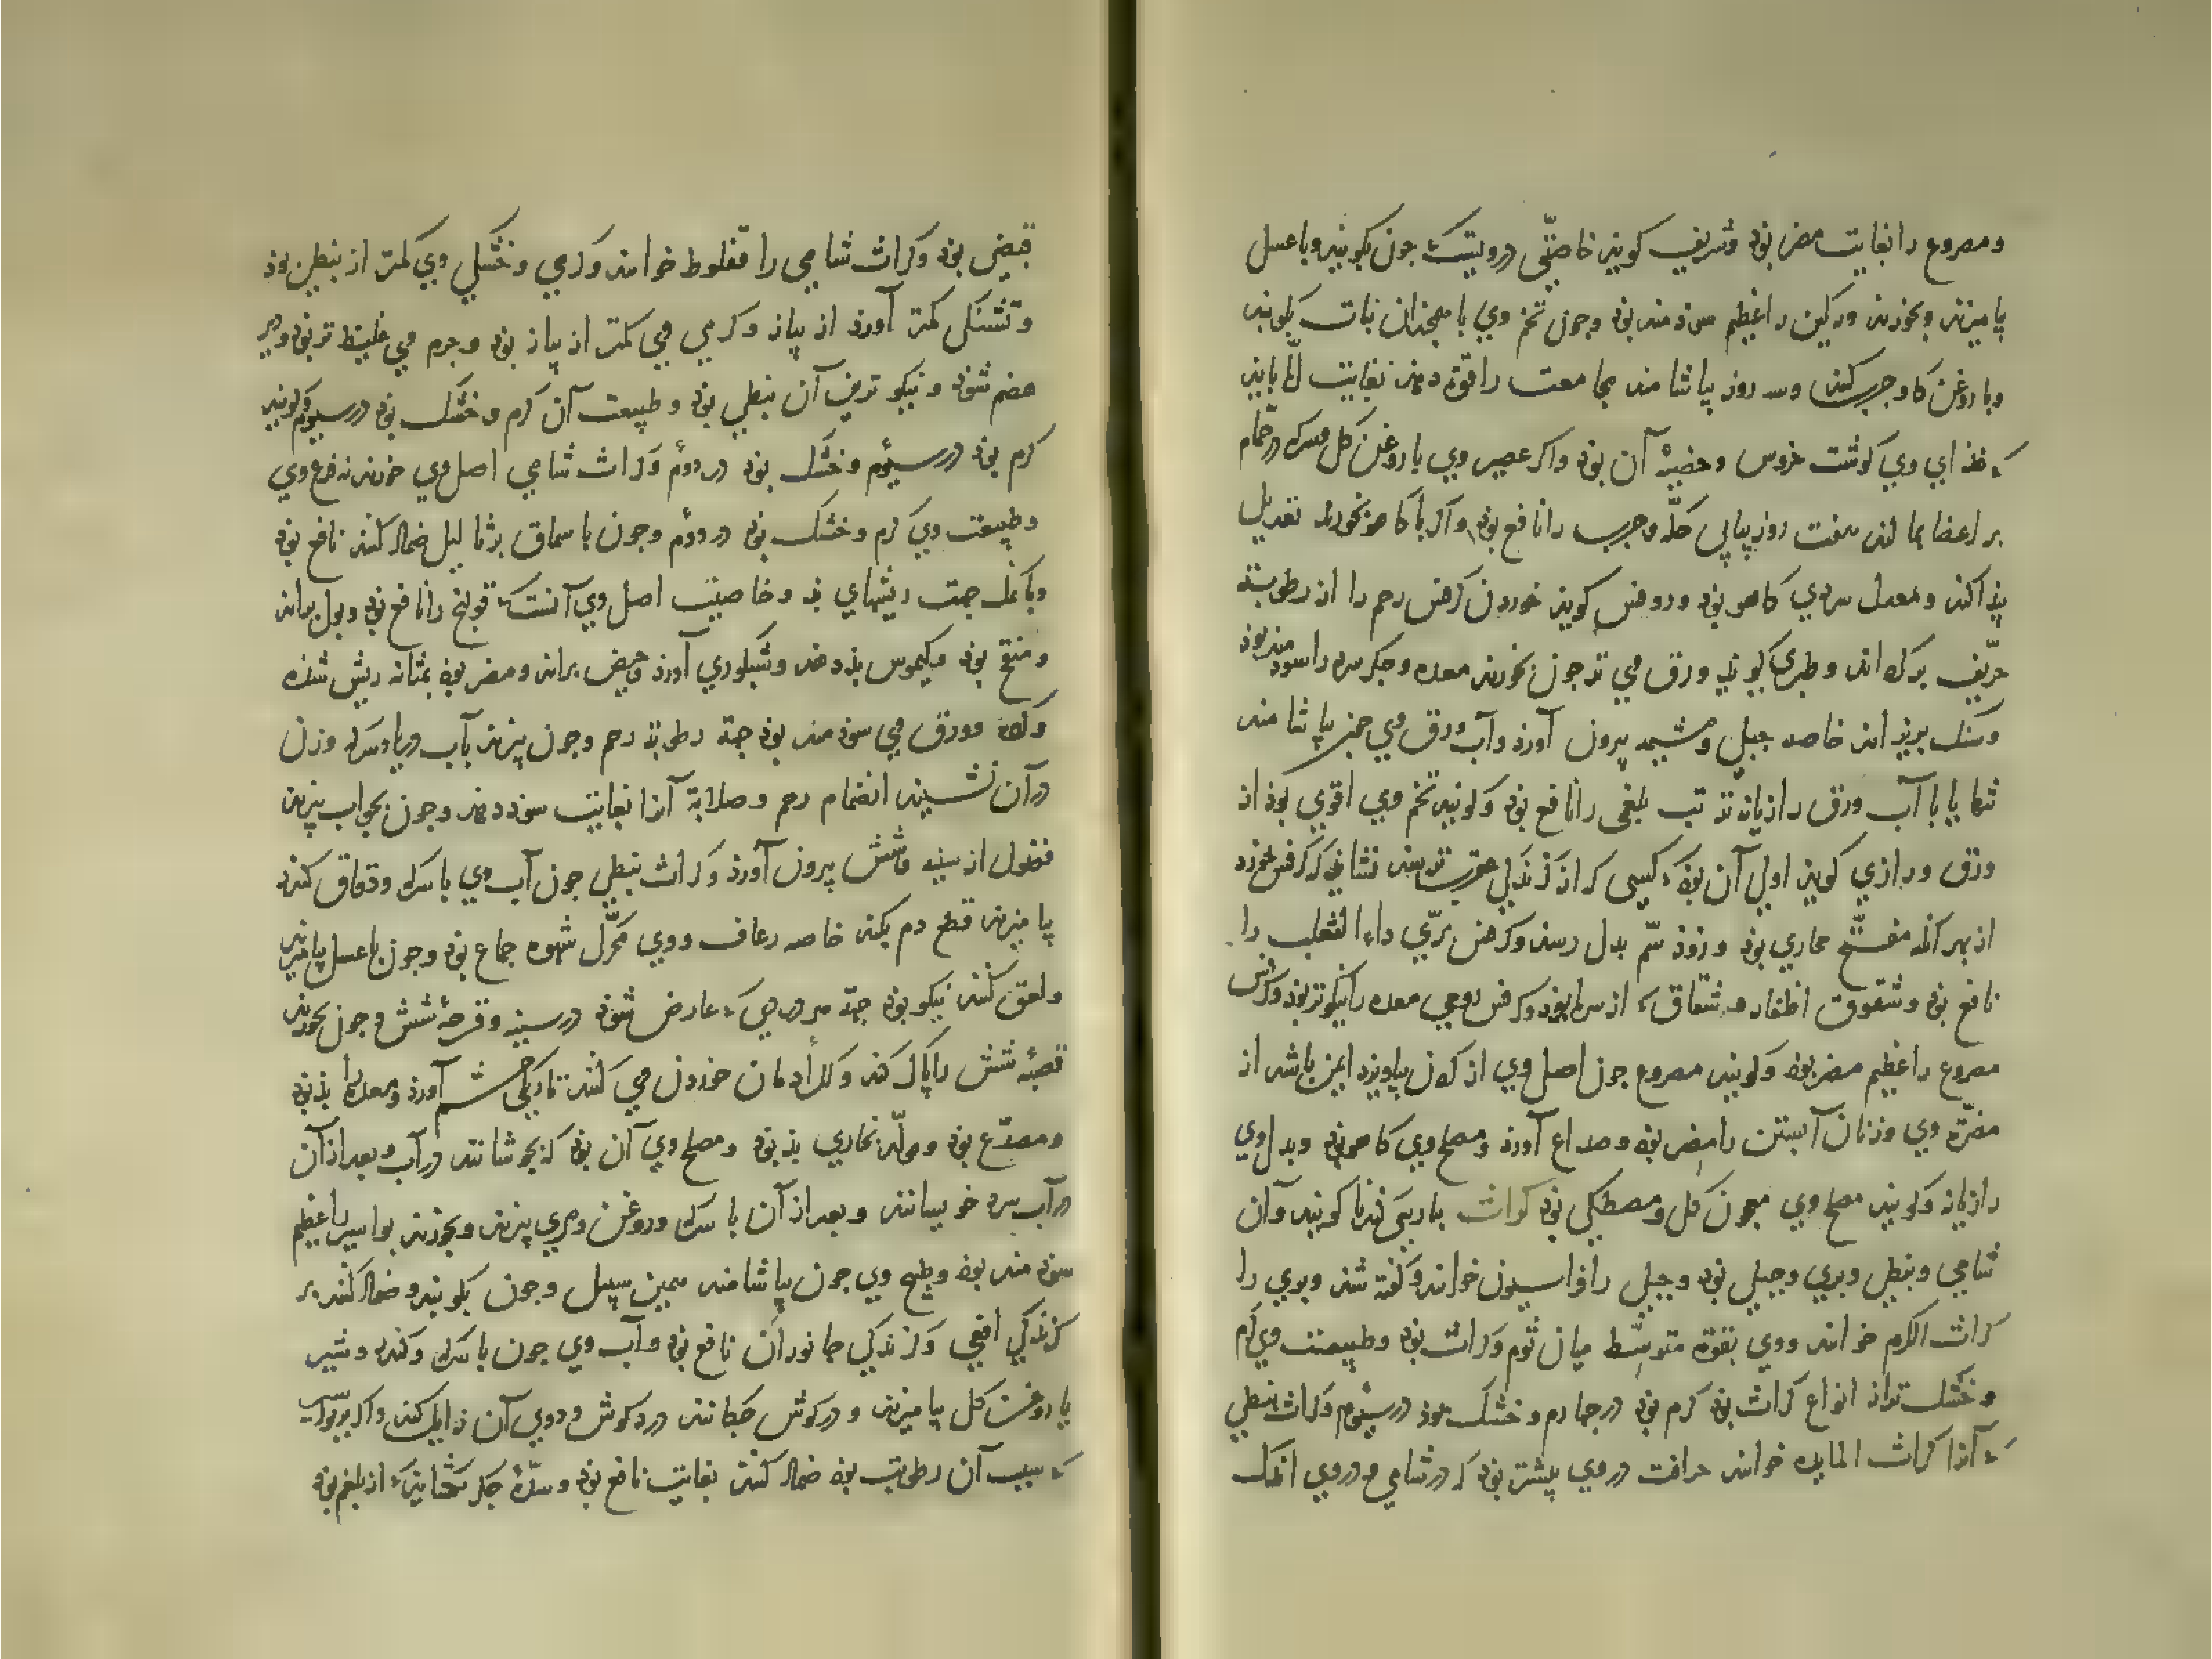 ومصروع را بغایت مضر بوذ وشریف کویذ خاصیّتی درویست کی جون بکوبند وبا عسل
بیامیزند وبخورند ورکین را عظیم سوذمند بوذ وجون تخم وی با همجندان نبات بکوبند
وبا روغن کاو جرب کنند وسه روز بیاشامند مجامعت را قوة دهد بغایت امّا بایذ
کی غذای وی کوشت خروس وخصیهٔ آن بوذ واکر عصیر وی با روغن کل وسرکه در حمّام
بر اعضا بمالند هفت روز پیاپی حکّه وجرب را نافع بوذ واکر با کاهو بخورند تعدیل
پذا کند ومعدل سردی کاهو بوذ وروفس کویذ خوردن کرفس رحم را از رطوبة
حرّیف برکرداند وطبری کویذ ورق وی تر جون بخورند معده وجکر سرد را سوذمند بوذ
وسنک بریزاند خاصه جبلی ومشیمه بیرون آورذ وآب ورق وی جون بیاشامند
تنها یا با آب ورق رازیانه تر تب بلغمی را نافع بوذ وکویند تخم وی اقوی بوذ از
ورق ورازی کویذ اولی آن بوذ کی کسی کی از کزندکی عقرب ترسد نشایذ کی کرفس خورد
از بهر آنک مفتّح مجاری بوذ وزوذ سمّ بدل رسد وکرفس برّی داء الثعلب را
نافع بوذ وشقوق اظفار وشقاق کی از سرما بوذ وکرفس رومی معده را نیکوتر بوذ وکرفس
مصروع را عظیم مضر بوذ وکویند مصروع جون اصل وی از کردن بیاویزد ایمن باشد از
مضرّة وی وزنان آبستن را مضر بوذ وصداع آورذ ومصلح وی کاهو بوذ وبدل وی
رازیانه وکویند مصلح وی معجون کل ومصطکی بوذ کراث بپارسی کندنا کویند وآن
شامی ونبطی وبری وجبلی بوذ وجبلی را فراسیون خوانند وکفته شد وبری را
کراث الکرم خوانند ووی بقوة متوسّط میان ثوم وکراث بوذ وطبیعت وی کرم
وخشک‌تر از انواع کراث بوذ کرم بوذ در جهارم وخشک بوذ در سیوم وکراث نبطی
کی آنرا کراث المایده خوانند حرافت در وی بیشتر بوذ کی در شامی ودر وی اندک
قبضی بوذ وکراث شامی را قفلوط خوانند وکرمی وخشکی وی کمتر از نبطی بوذ
وتشنکی کمتر آورذ از پیاز وکرمی وی کمتر از پیاز بوذ وجرم وی غلیظ‌تر بوذ ودیر
هضم شوذ ونیکوترین آن نبطی بوذ وطبیعت آن کرم وخشک بوذ در سیوم وکویند
کرم بوذ در سیوم وخشک بوذ در دوم وکراث شامی اصل وی خورند نه فرع وی
وطبیعت وی کرم وخشک بوذ در دوم وجون با سماق بر ثالیل ضماد کنند نافع بوذ
وبا نمک جهت ریشهای بذ وخاصیت اصل وی آنست کی قولنج را نافع بوذ وبول براند
ومنفّخ بوذ وکیموس بذ دهد وشبکوری آورذ وحیض براند ومضر بوذ بمثانه ریش شده
وکرده وورق وی سوذمند بوذ جهة رطوبة رحم وجون بپزند بآب دریا وسرکه وزن
در آن نشیند انضمام رحم وصلابة آنرا بغایت سوذ دهد وجون بجواب بپزند
فضول از سینه وشش بیرون آورذ وکراث نبطی جون آب وی با سرکه ودقاق کندر
بیامیزند قطع دم بکند خاصه رعاف ووی محرّک شهوه جماع بوذ وجون با عسل بیامیزند
ولعق کنند نیکو بوذ جهة هر دردی کی عارض شوذ در سینه وقرحهٔ شش وجون بخورند
قصبهٔ شش را پاک کند وکر ادمان خوردن وی کنند تاریکی جشم آورذ ومعده را بذ بوذ
ومصدّع بوذ ومولّد بخاری بذ بوذ ومصلح وی آن بوذ کی بجوشانند در آب وبعد از آن
در آب سرد خوبسانند وبعد از آن با سرکه وروغن ومری بپزند وبخورند بواسیر را عظیم
سوذمند بوذ وطبیخ وی جون بیاشامند همین سبیل وجون بکوبند وضماد کنند بر
کزندکی افعی وکزندکی جانوران نافع بوذ وآب وی جون با سرکه وکندر وشیر
یا روغن کل بیامیزند ودر کوش جکانند درد کوش ودوی آن زایل کند واکر بر بواسیر
کی سبب آن رطوبت بوذ ضماد کنند بغایت نافع بوذ وسدّهٔ جکر بکشایذ کی از بلغم بوذ